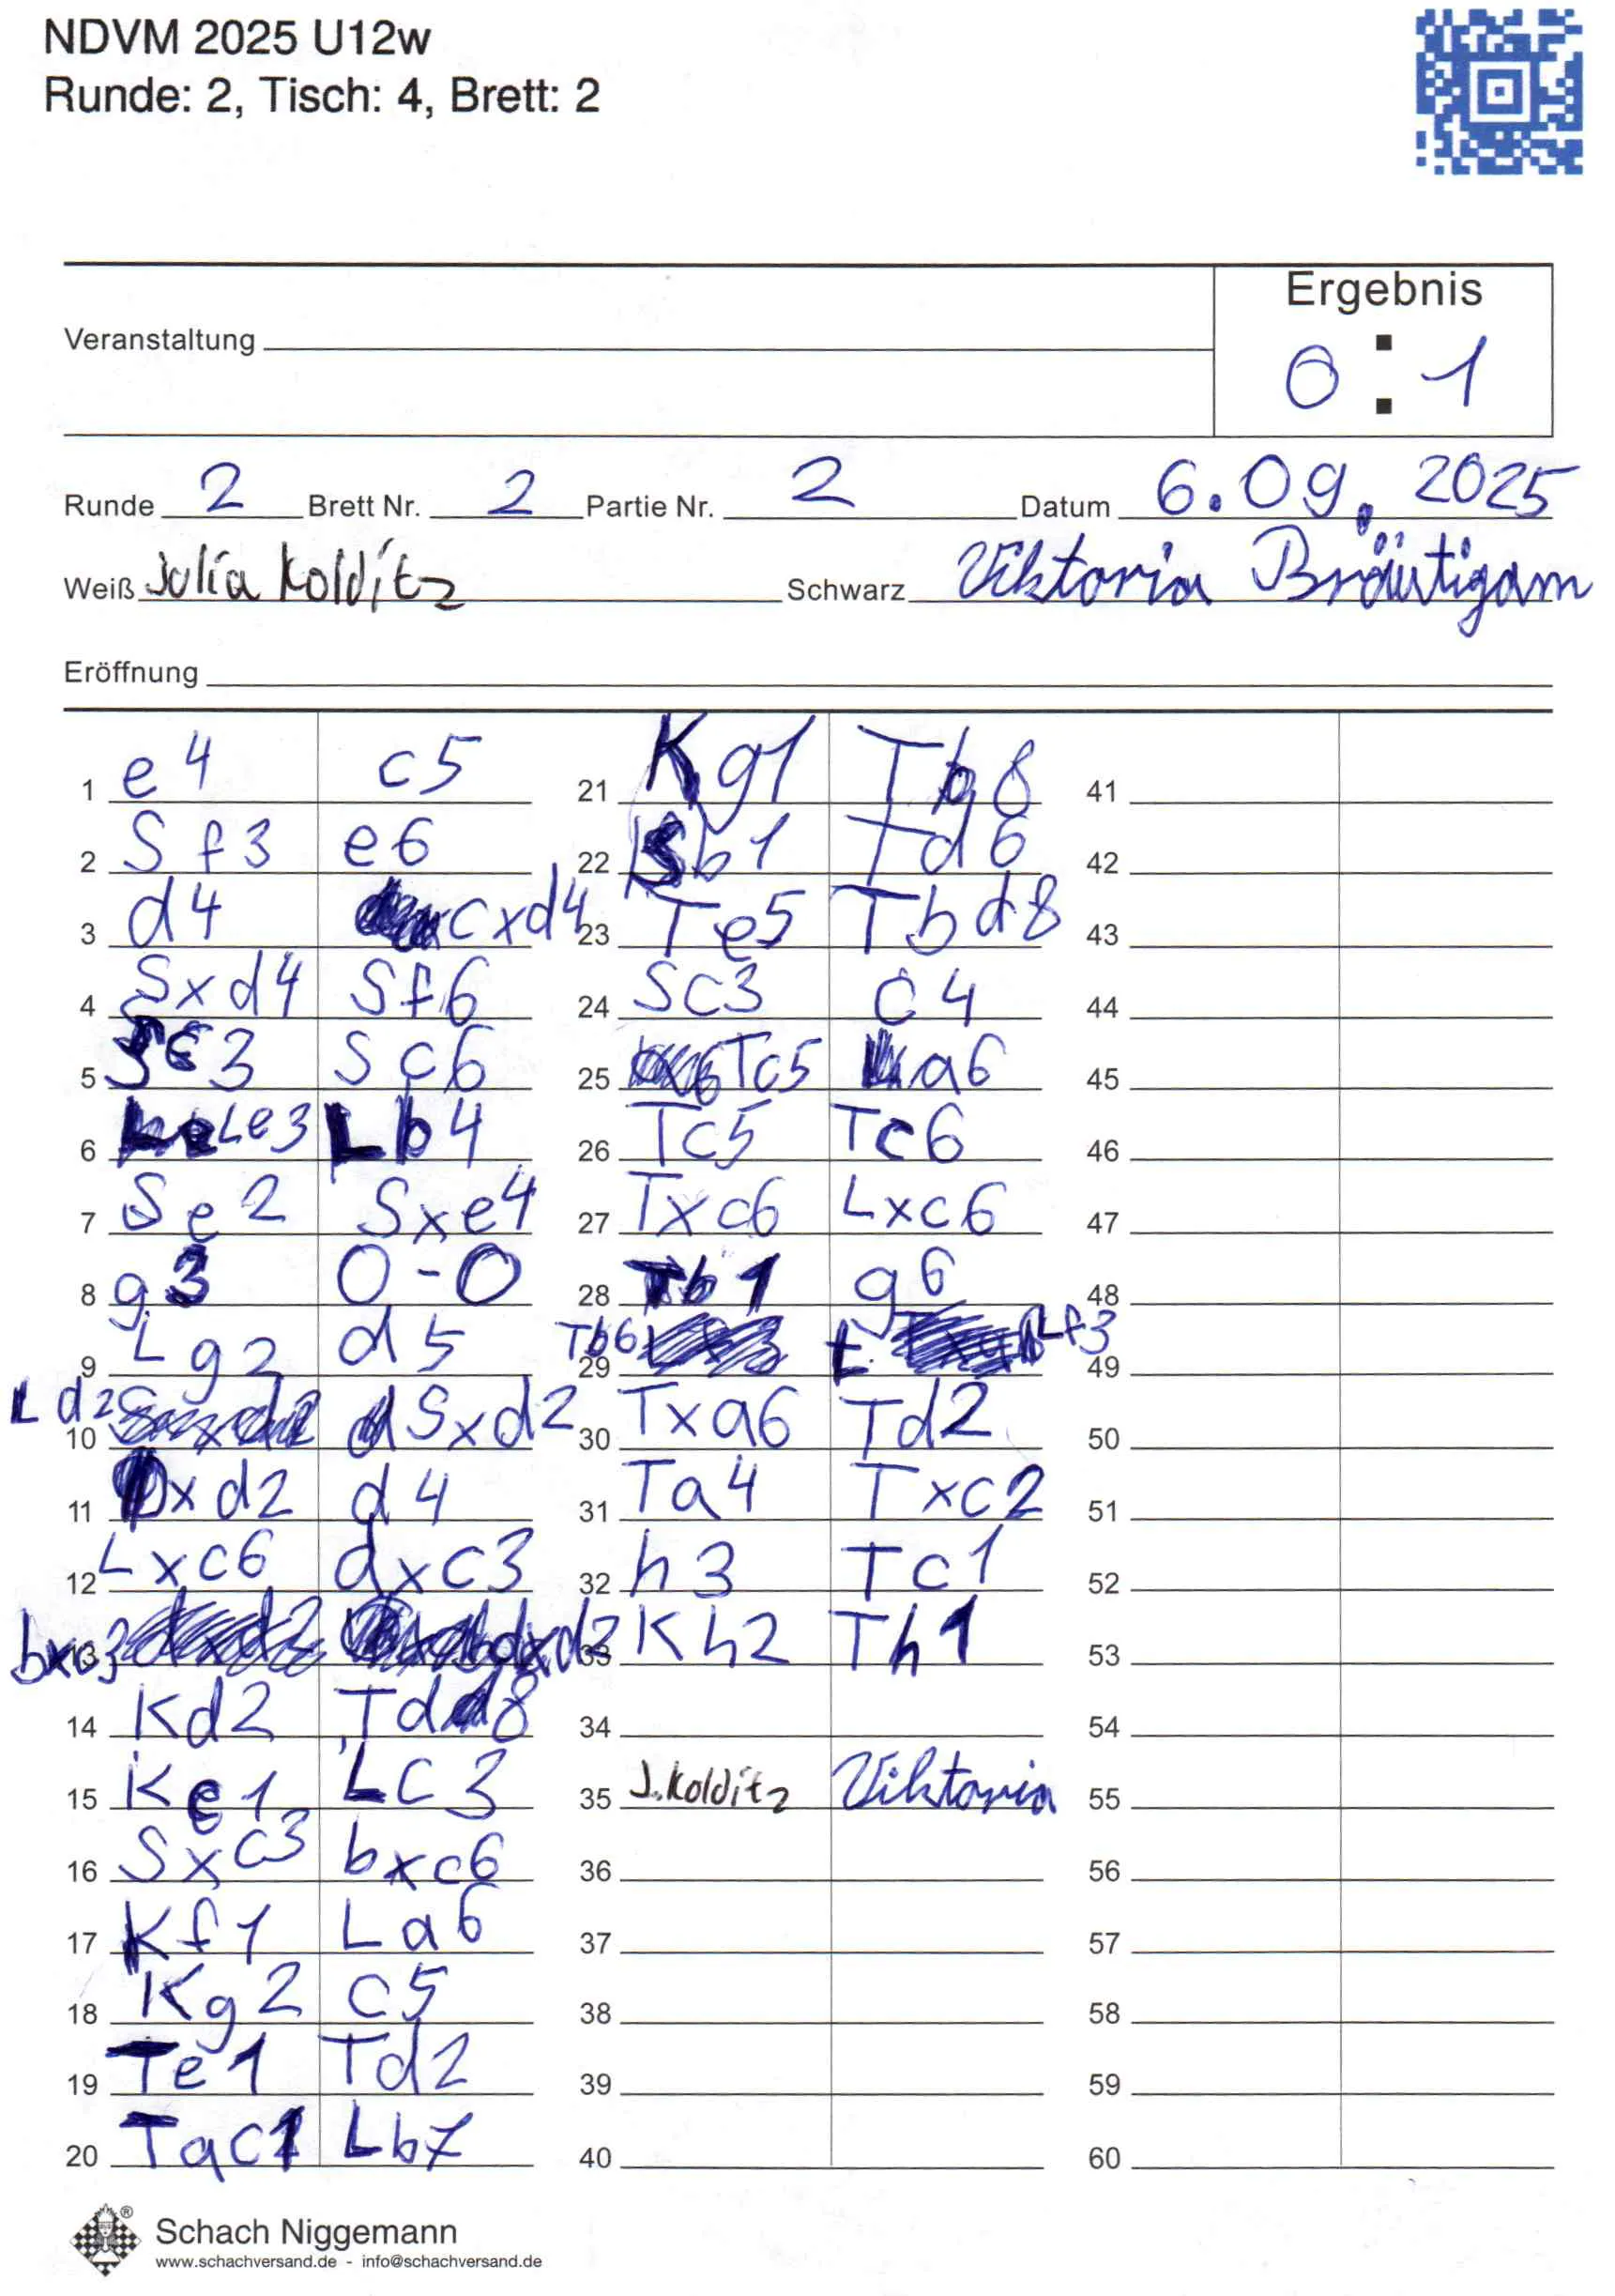 NDVM 2025 U12w
Runde: 2, Tisch: 4, Brett: 2
Ergebnis
Veranstaltung
0 : 1
Runde 2 Brett Nr. 2 Partie Nr. 2 Datum 6.09.2025
Weiß Julia Kolditz Schwarz Viktoria Bräutigam
Eröffnung
1 e4 c5
2 Sf3 e6
3 d4 cxd4
4 Sxd4 Sf6
5 Sc3 Sc6
6 Le3 Lb4
7 Se2 Sxe4
8 g3 0-0
9 Lg2 d5
10 Ld2 Sxd2
11 Dxd2 d4
12 Lxc6 dxc3
13 bxc3 dxd2
14 Kd2 Td8
15 Ke1 Lc3
16 Sxc3 bxc6
17 Kf1 La6
18 Kg2 c5
19 Te1 Td2
20 Tac1 Lb7
21 Kg1 Tb8
22 Sb1 Td6
23 Te5 Tbd8
24 Sc3 c4
25 Tc5 a6
26 Tc5 Tc6
27 Txc6 Lxc6
28 Tb1 g6
29 Tb6 Lf3
30 Txa6 Td2
31 Ta4 Txc2
32 h3 Tc1
33 Kh2 Th1
34
35 J. Kolditz Viktoria
36
37
38
39
40
41
42
43
44
45
46
47
48
49
50
51
52
53
54
55
56
57
58
59
60
®
Schach Niggemann
www.schachversand.de - info@schachversand.de